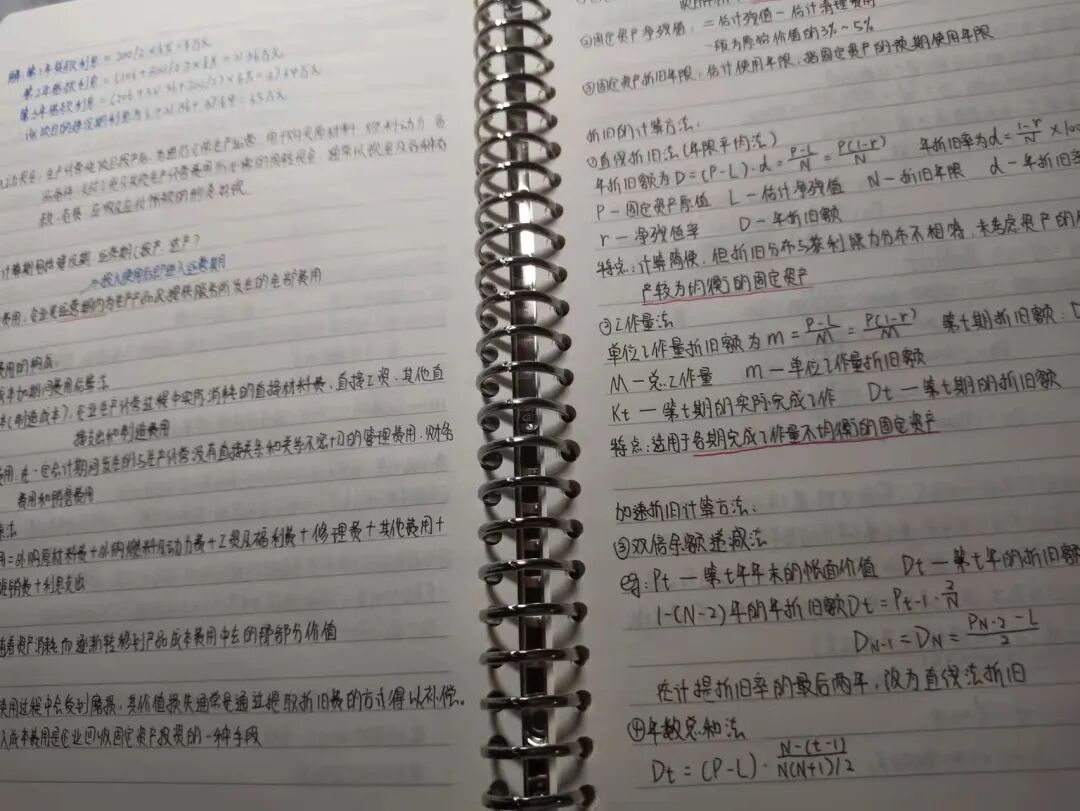 解:第1年借款利息=200/2×6%=6万元
第2年借款利息=(206+
第3年借款利息=(206+321.36+200/2)×6%=37.64万元
该项目的建设期利息为6+21.36+37.64=65万元
款、存货、应收及应付
计算期包括建设期、运营期(投产、达产)
投入使用后即进入运营期
费用:企业在运营期内为生产产品或提供服务所发生的全部费用
费用的构成:
成本加期间费用估算法
本(制造成本):企业生产经营过程中实际消耗的直接材料费、直接工资、其他直
接支出和制造费用
费用:在一定会计期间发生的与生产经营没有直接关系和关系不密切的管理费用、财务
费用和销售费用
素法
用=外购原材料费+外购燃料及动力费+工资及福利费+修理费+其他费用+
摊销费+利息支出
随着资产消耗而逐渐转移到产品成本费用中去的那部分价值
使用过程中会受到磨损,其价值损失通常是通过提取折旧费的方式得以补偿。
入成本费用是企业回收固定资产投资的一种手段
②固定资产净残值:=估计残值-估计清理费用
一般为原始价值的3%~5%
③固定资产折旧年限:估计使用年限,指固定资产的预期使用年限
折旧的计算方法:
①直线折旧法(年限平均法)
年折旧额为D=(P-L)·d=(P-L)/N=P(1-r)/N 年折旧率为d=(1-r)/N×100
P-固定资产原值 L-估计净残值 N-折旧年限 d-年折旧率
r-净残值率 D-年折旧额
特点:计算简便,但折旧分布与获利能力分布不相符,未考虑资产的
产较为均衡的固定资产
②工作量法
单位工作量折旧额为m=(P-L)/M=P(1-r)/M 第t期折旧额:D
M-总工作量 m-单位工作量折旧额
Kt-第t期的实际完成工作 Dt-第t期的折旧额
特点:适用于各期完成工作量不均衡的固定资产
加速折旧计算方法:
③双倍余额递减法
eg:Pt-第t年年末的帐面价值 Dt-第t年的折旧额
1-(N-2)年的年折旧额Dt=Pt-1·2/N
DN-1=DN=(PN-2-L)/2
在计提折旧率的最后两年,改为直线法折旧
④年数总和法
Dt=(P-L)·(N-(t-1))/(N(N+1)/2)